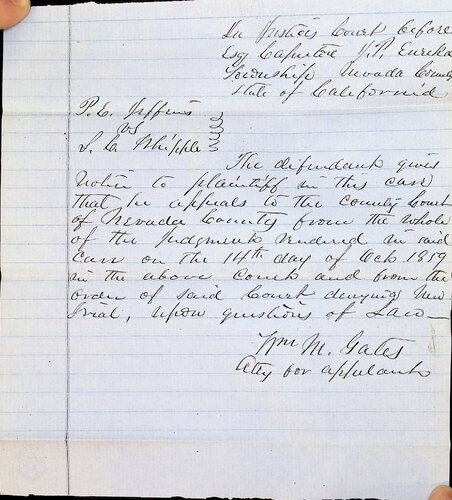 In Justices Court before
Esq Capertore J.P. Eureka
Township Nevada County
State of California
P. E. Jeffris
vs
S. C. Whipple
The defendant gives
notice to plaintiff in this case
that he appeals to the County Court
of Nevada County from the whole
of the Judgment rendered in said
case on the 14th day of Oct 1879
in the above Court and from the
order of said Court denying New
trial, upon questions of Law —
Wm M. Gates
Atty for appelants